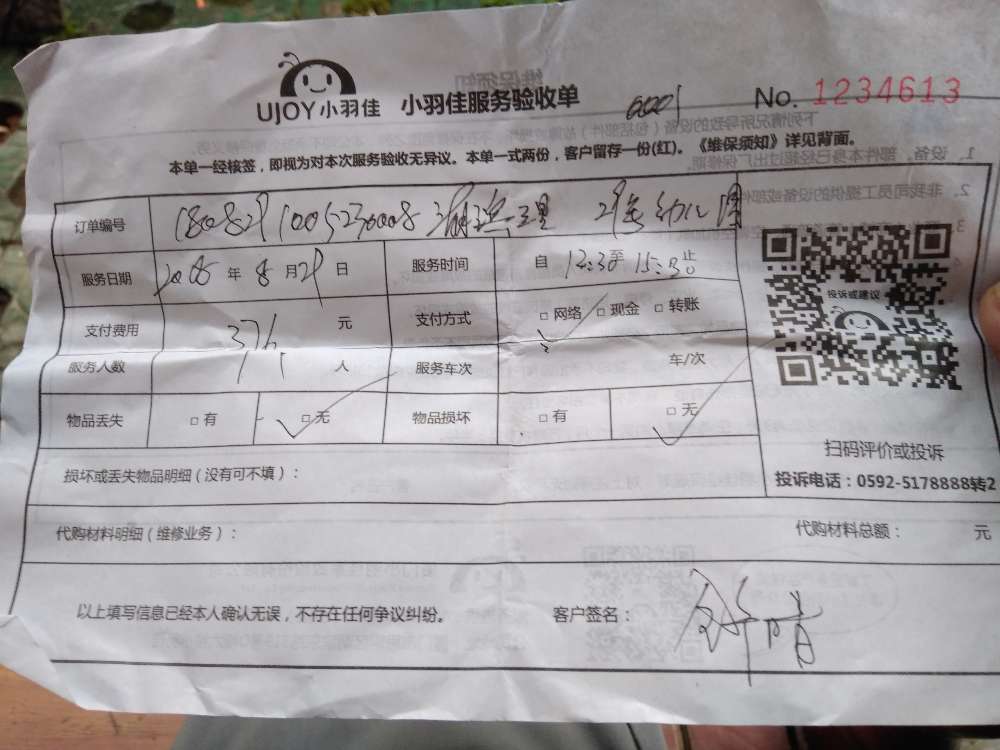 UJOY小羽佳 小羽佳服务验收单 0001 No. 1234613
本单一经核签，即视为对本次服务验收无异议。本单一式两份，客户留存一份(红)。《维保须知》详见背面。
订单编号 1808291005230008 幼儿园
服务日期 2018 年 8 月 29 日 服务时间 自 12:30 至 15:30 止
支付费用 376 元 支付方式 □ 网络 □ 现金 □ 转账
服务人数 人 服务车次 车/次
物品丢失 □ 有 □ 无 物品损坏 □ 有 □ 无
投诉或建议
扫码评价或投诉
损坏或丢失物品明细（没有可不填）：
投诉电话：0592-5178888转2
代购材料明细（维修业务）： 代购材料总额： 元
以上填写信息已经本人确认无误，不存在任何争议纠纷。 客户签名：